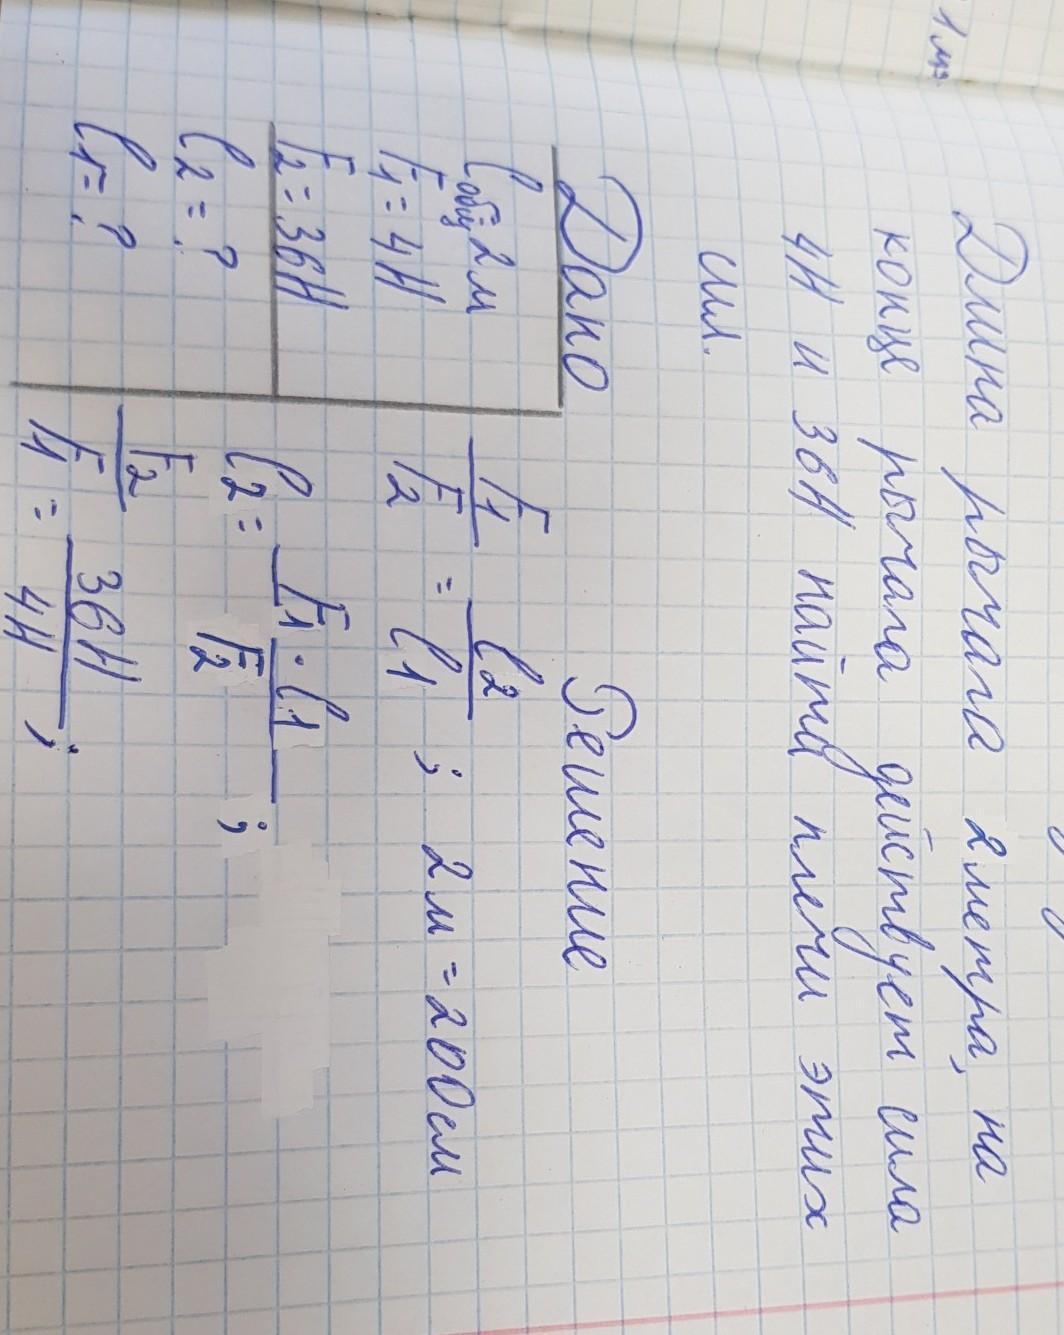 1 мэ
Длина рычага 2 метра, на
конце рычага действует сила
4Н и 36Н найти плечи этих
сил.
Дано
Решение
lобщ 2м
F1 = 4Н
F2 = 36Н
l2 = ?
l1 = ?
F1/F2 = l2/l1 ; 2м = 200см
l2 = F1 · l1/F2 ;
F2/F1 = 36Н/4Н ;